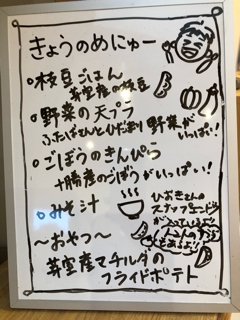 きょうのめにゅー
○枝豆ごはん
芽室産の枝豆
○野菜の天プラ
野菜が
いっぱい!!
○ごぼうのきんぴら
十勝産のごぼうがいっぱい!!
○みそ汁
ひおきさんの
スナップエンドウ
が入っているよ!
～おやつ～
芽室産マチルダの
フライドポテト